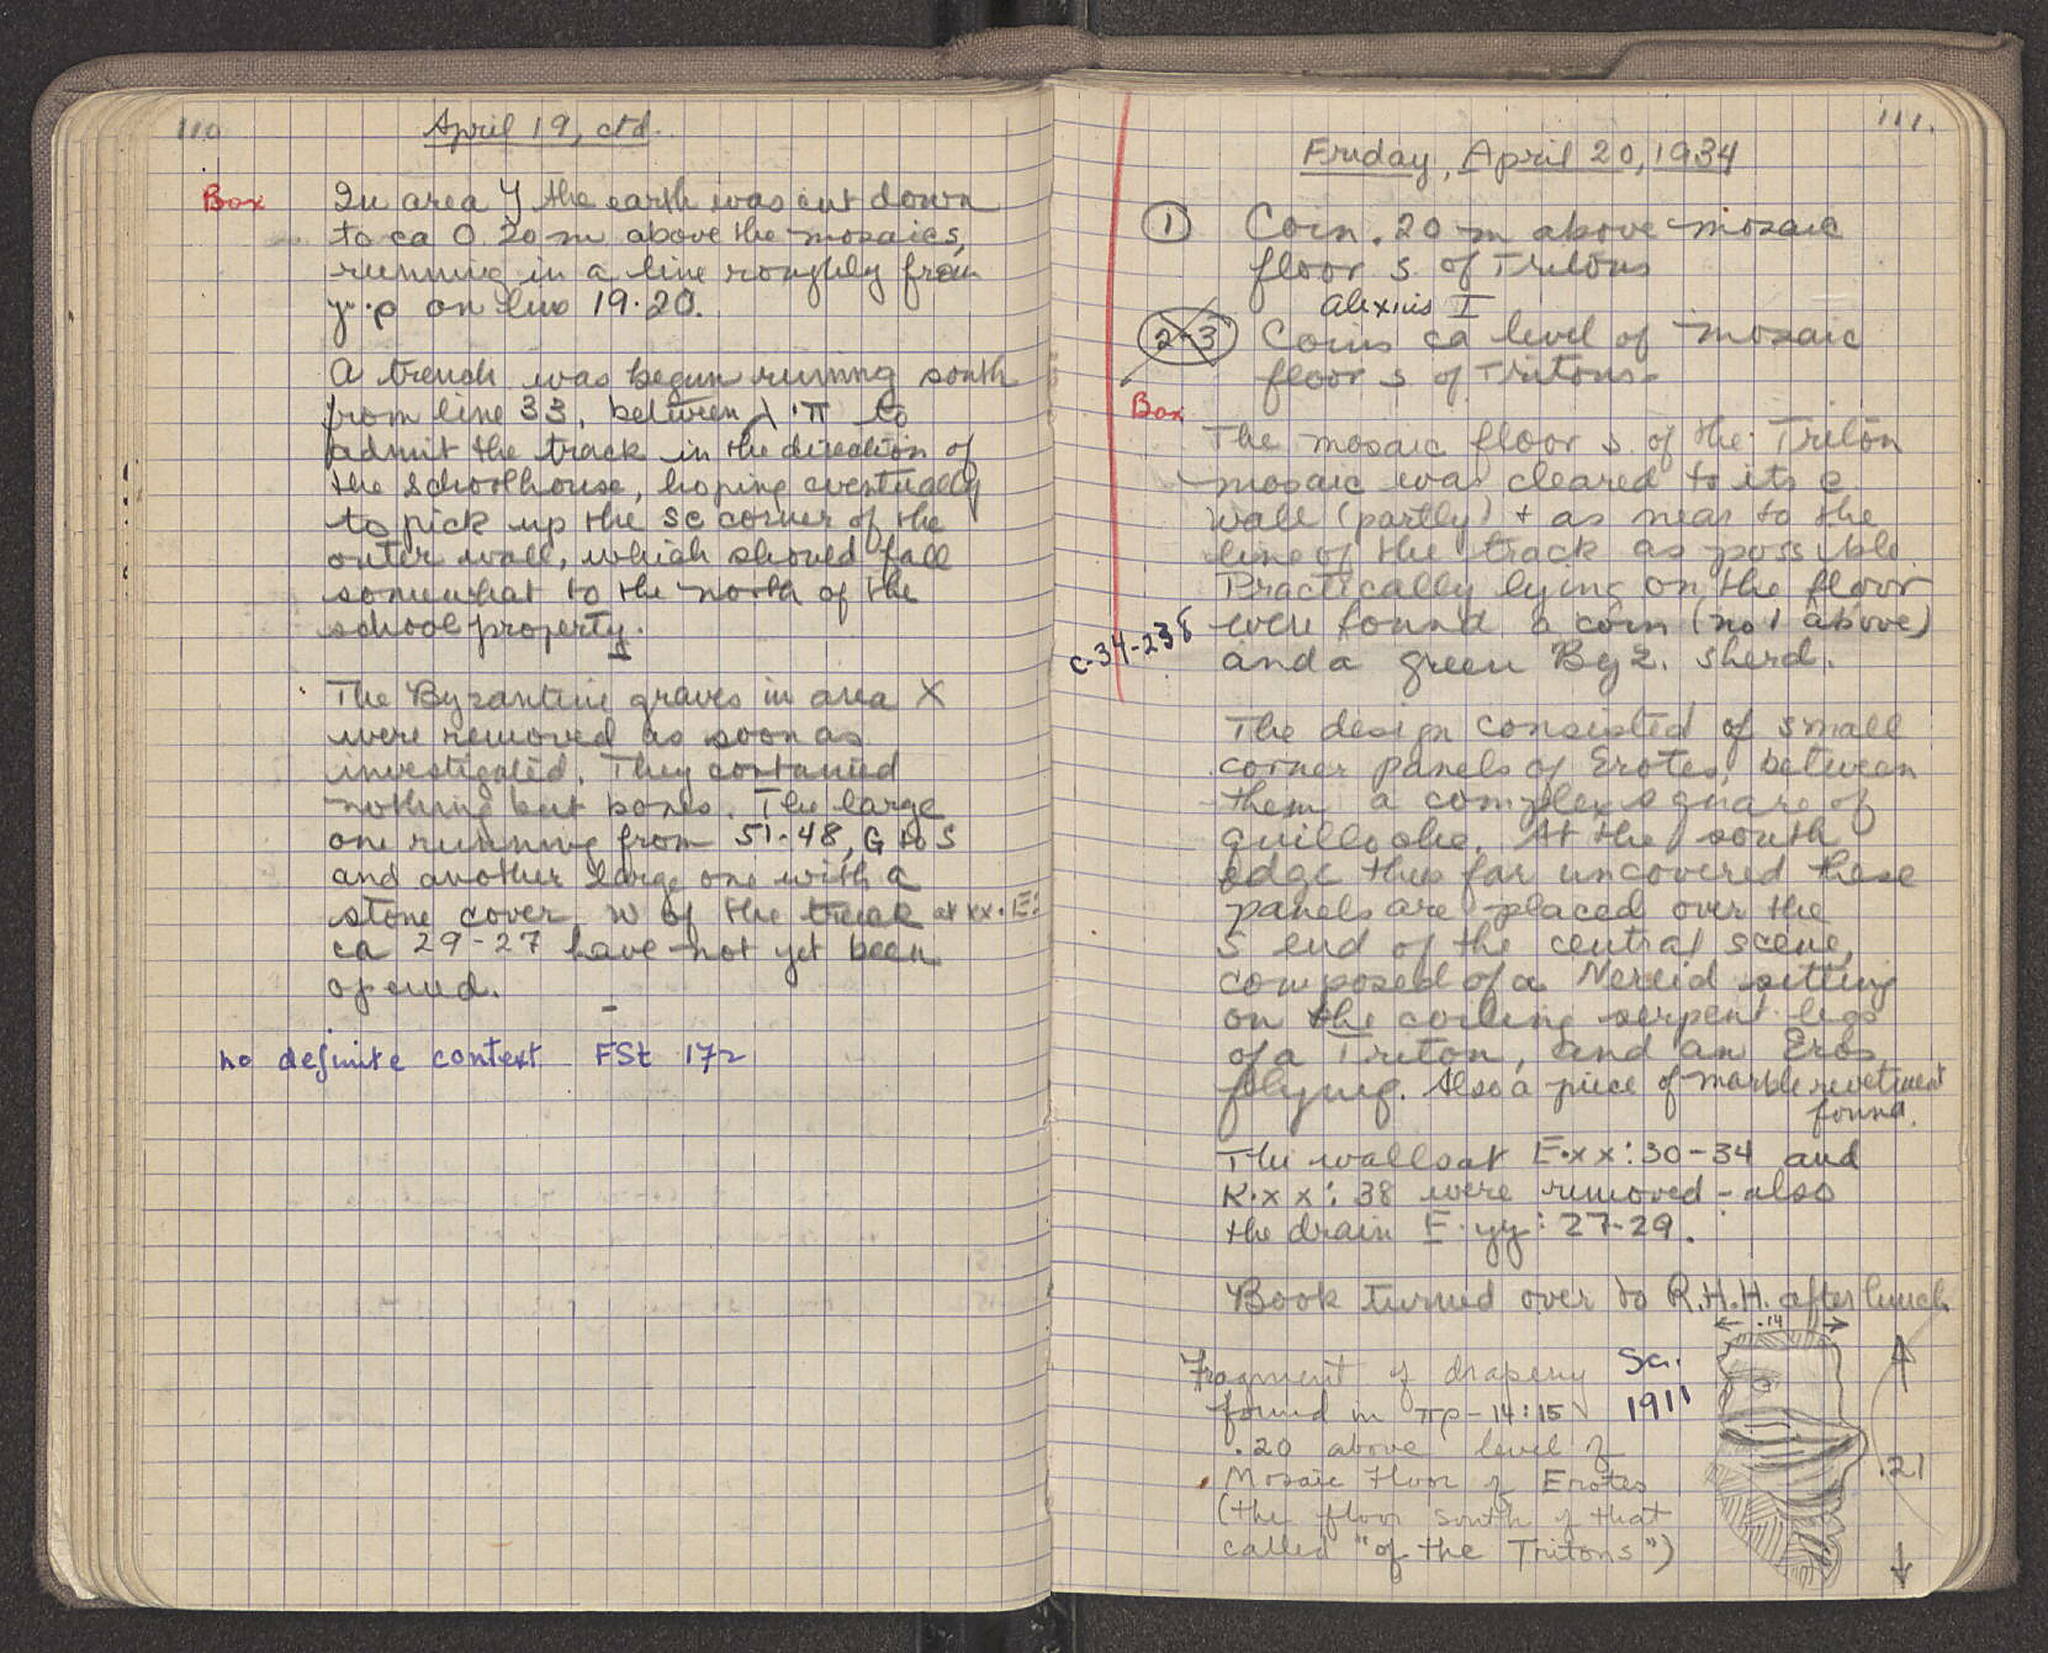 110
April 19, ctd.
Box
In area Y the earth was cut down
to ca 0.20 m above the mosaics,
running in a line roughly from
on line 19.20.
A trench was begun running south
from line 33, between λ.π to
admit the track in the direction of
the schoolhouse, hoping eventually
to pick up the se corner of the
outer wall, which should fall
somewhat to the north of the
school property.
The Byzantine graves in area X
were removed as soon as
investigated. They contained
nothing but bones. The large
one running from 51-48, G to S
and another large one with a
stone cover w of the at xx.E:
ca 29-27 have not yet been
opened.
no definite context FSt 172
111.
Friday, April 20, 1934
① Coin .20 m above mosaic
floor s. of Tritons
Alexius I
2-3 Coins ca level of mosaic
floor s of Tritons.
Box
The mosaic floor s. of the Triton
mosaic was cleared to its e
wall (partly) + as near to the
line of the track as possible
Practically lying on the floor
were found a coin (no 1 above)
C-34-238
and a green Byz. sherd.
The design consisted of small
corner panels of Erotes, between
them a complex square of
guilloche. At the south
edge thus far uncovered these
panels are placed over the
S end of the central scene,
composed of a Nereid sitting
on the coiling serpent legs
of a Triton, and an Eros
flying. Also a piece of marble revetment
found.
The walls at E.xx:30-34 and
K.xx:38 were removed - also
the drain E.yy:27-29.
Book turned over to R.H.H. after lunch
← .14 →
Fragment of drapery Sa.
found in πρ-14:15 1911
.20 above level of
Mosaic Floor of Erotes
.21
(the floor south of that
called "of the Tritons")